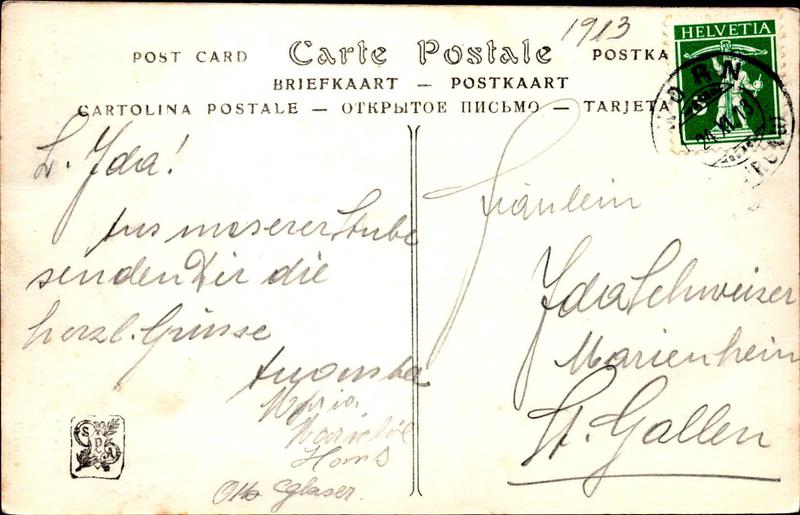 1913
POST CARD Carte Postale POSTKA
BRIEFKAART — POSTKAART
CARTOLINA POSTALE — ОТКРЫТОЕ ПИСЬМО — TARJETA
HELVETIA
HORN
24.XI.13
L. Ida!
Aus unserer Stube
senden Dir die
herzl. Grüsse
Augusta
Hans
Otto Glaser.
Fräulein
Ida Schweizer
Marienheim
St. Gallen
S P A